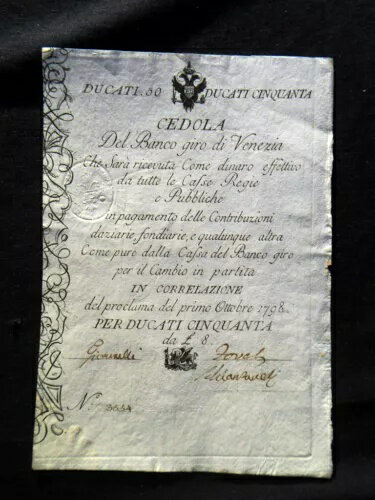 DUCATI. 50 DUCATI CINQUANTA
CEDOLA
Del Banco giro di Venezia
Che Sarà ricevuta Come dinaro effettivo
da tutte le Casse Regie
e Pubbliche
in pagamento delle Contribuzioni
daziarie, fondiarie, e qualunque altra
Come pure dalla Cassa del Banco giro
per il Cambio in partita
IN CORRELAZIONE
del proclama del primo Ottobre 1798.
PER DUCATI CINQUANTA
da £ 8.
N.